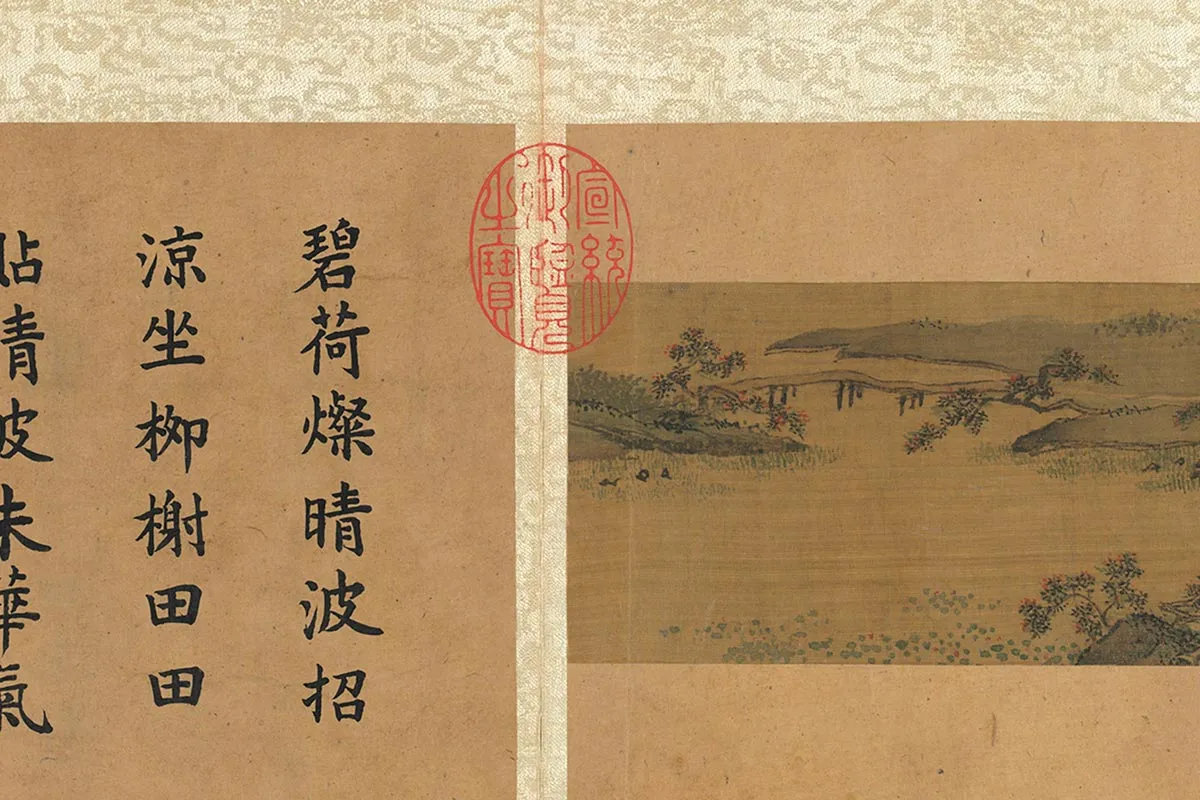 宣統
御覽
之寶
碧荷燦晴波招
涼坐柳榭田田
貼青波朱華氣